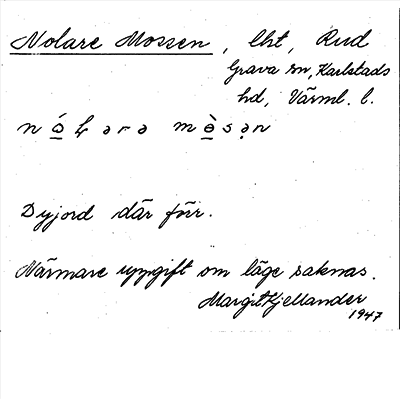 Nolare Mossen, lht, Rud
Grava sn, Karlstads
hd, Värml. l.
Dyjord där förr.
Närmare uppgift om läge saknas.
Margit Kjellander
1947